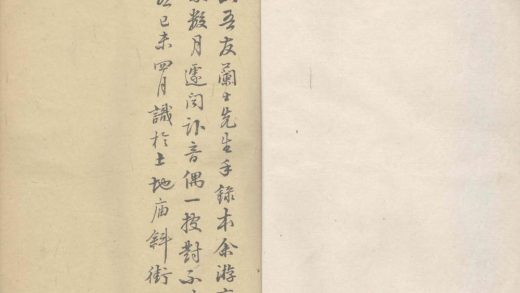 吾友蘭士先生手錄本余游
數月遽聞訃音偶一披對不
己未四月識於土地庙斜街